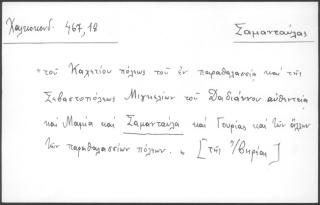 Χαλκοκονδ. 467,18 Σαμανταύλας
"τοῦ Καχετίου πόλεως τοῦ ἐν παραθαλασσίᾳ καὶ τῆς
Σεβαστοπόλεως Μιγκρελίων τοῦ Δαδιάνου αὐθεντεία
καὶ Μαμία καὶ Σαμανταύλα καὶ Γουρίας καὶ τῶν ἄλλων
τῶν παραθαλασσίων πόλεων. „ [τῆς Ἰβηρίας]